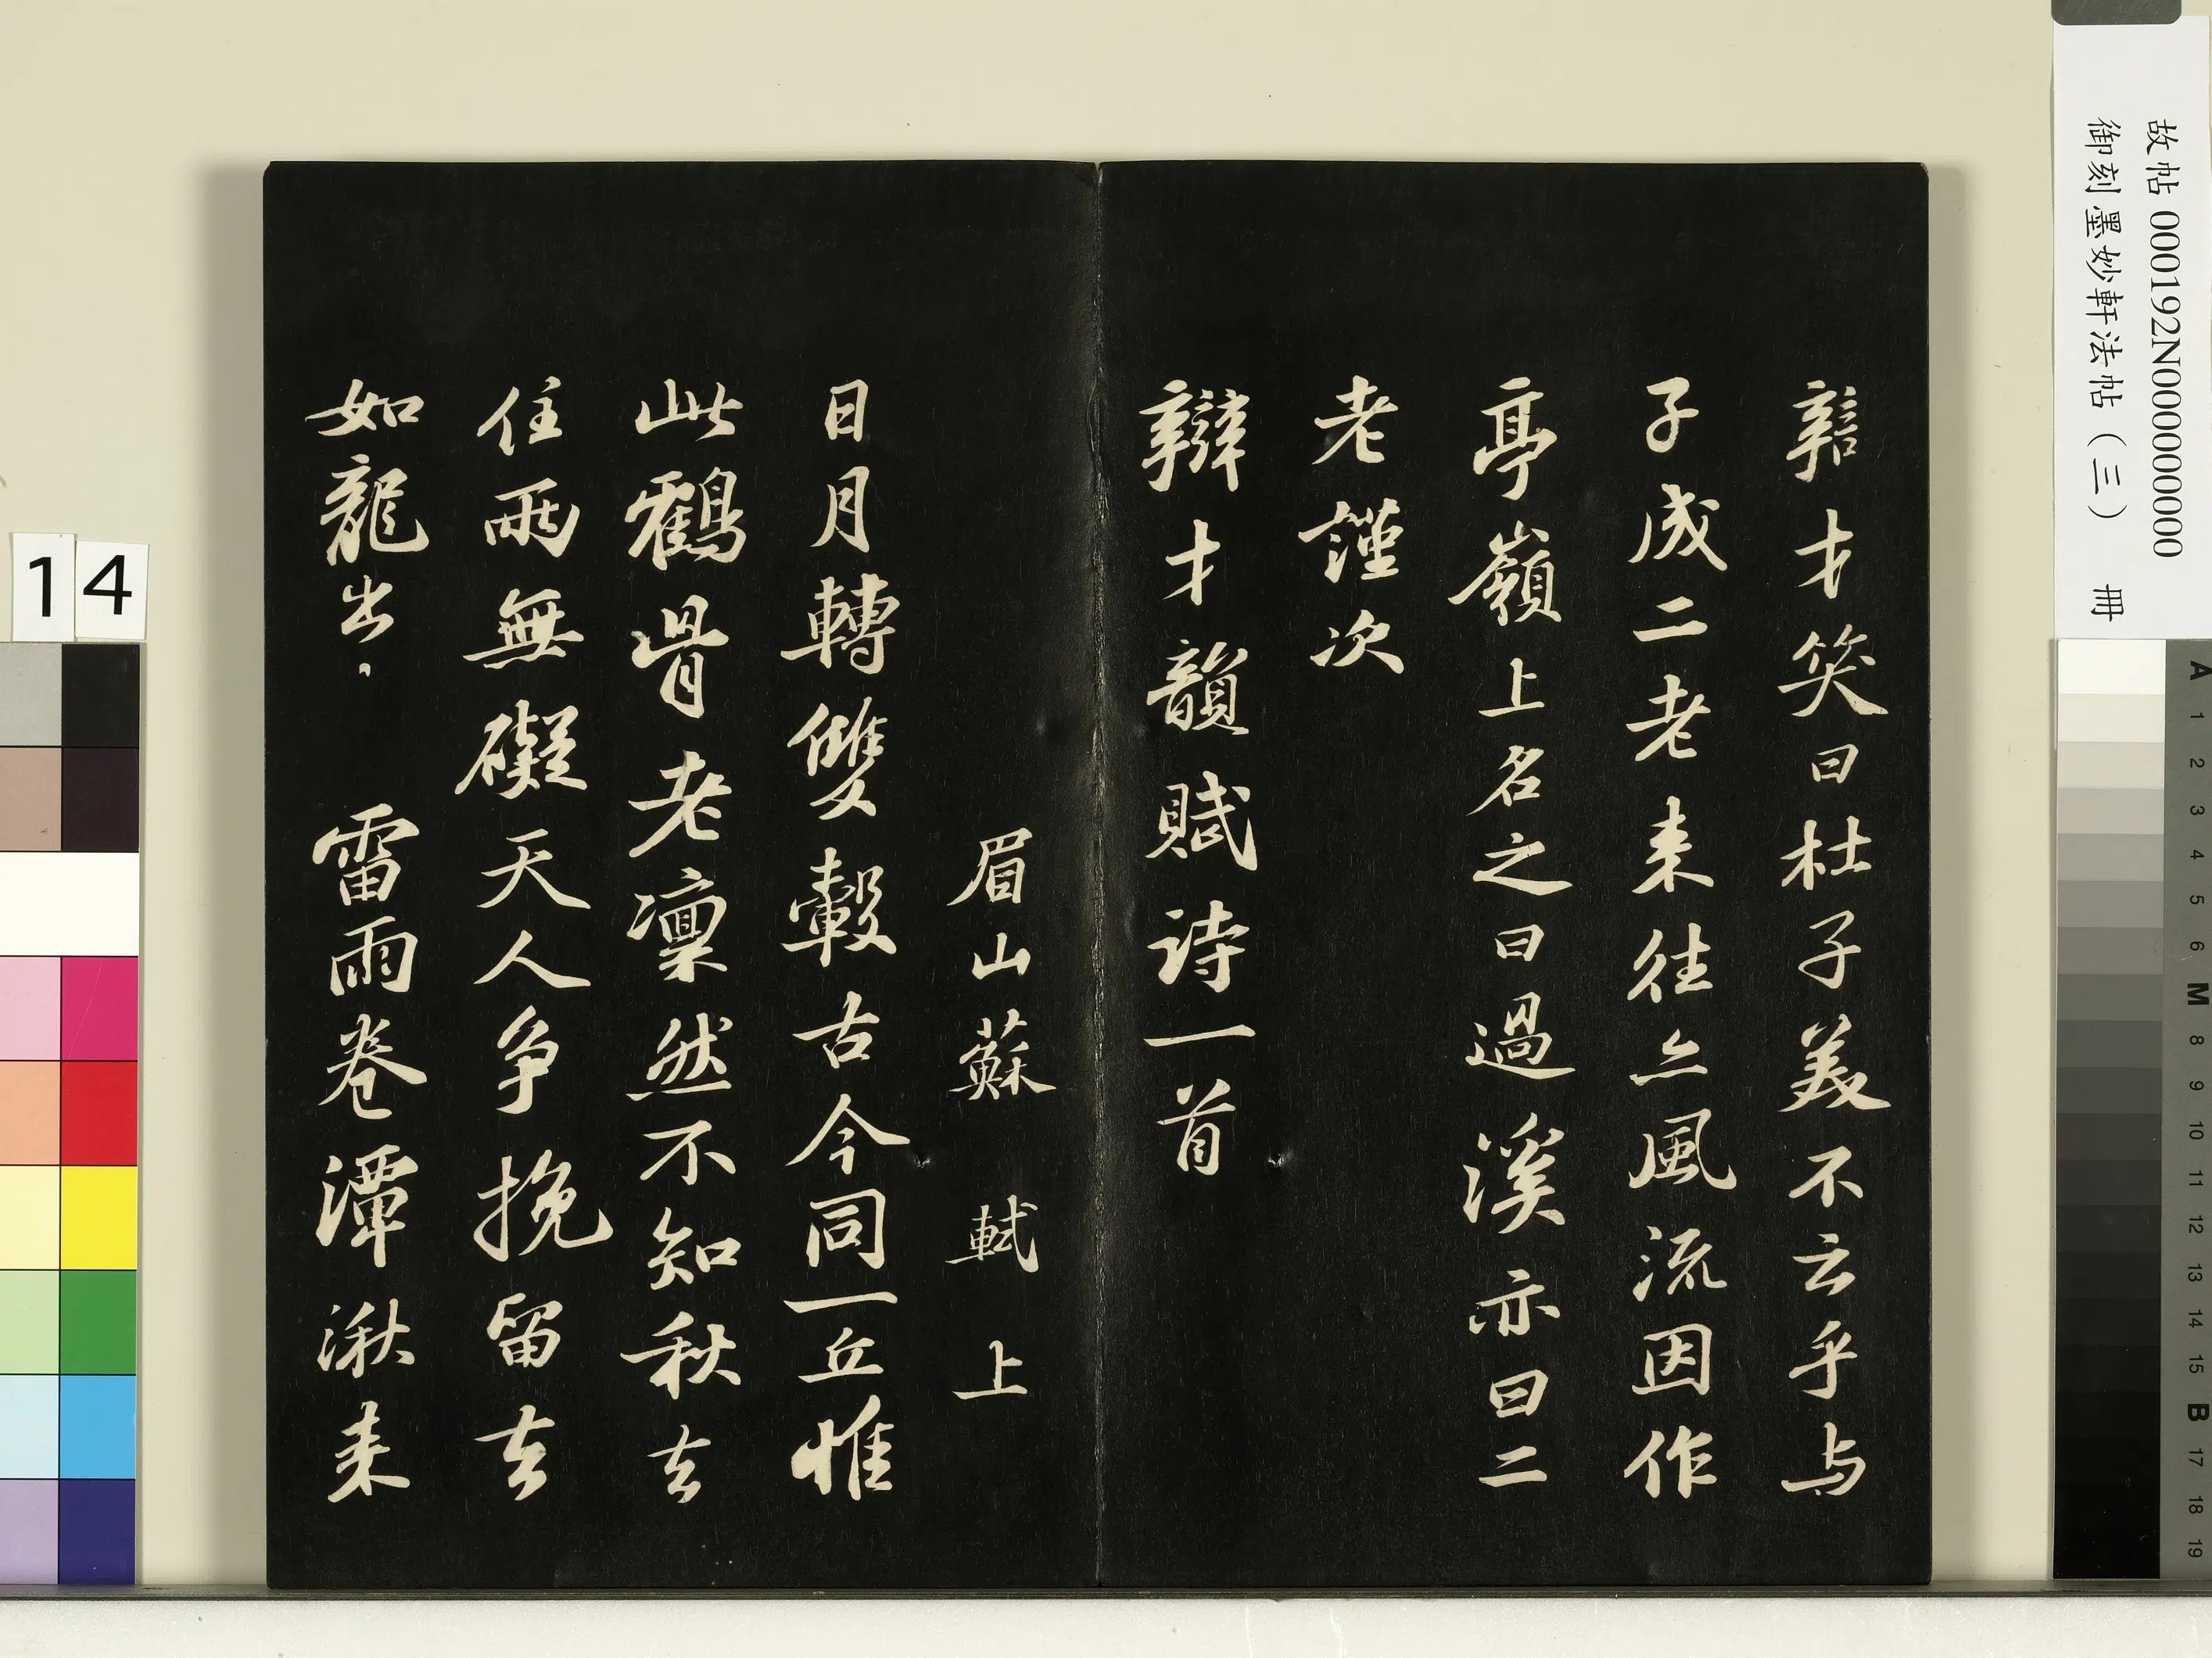 辯才笑曰杜子美不云乎与
子成二老来往亦風流因作
亭嶺上名之曰過溪亦曰二
老謹次
辯才韻賦诗一首
眉山蘇軾上
日月轉雙轂古今同一丘惟
此鶴骨老凛然不知秋去
住兩無礙天人争挽留去
如龍出、雷雨卷潭湫来
故帖 000192N000000000
御刻墨妙軒法帖（三） 冊
14
A 1 2 3 4 5 6 M 8 9 10 11 12 13 14 15 B 17 18 19